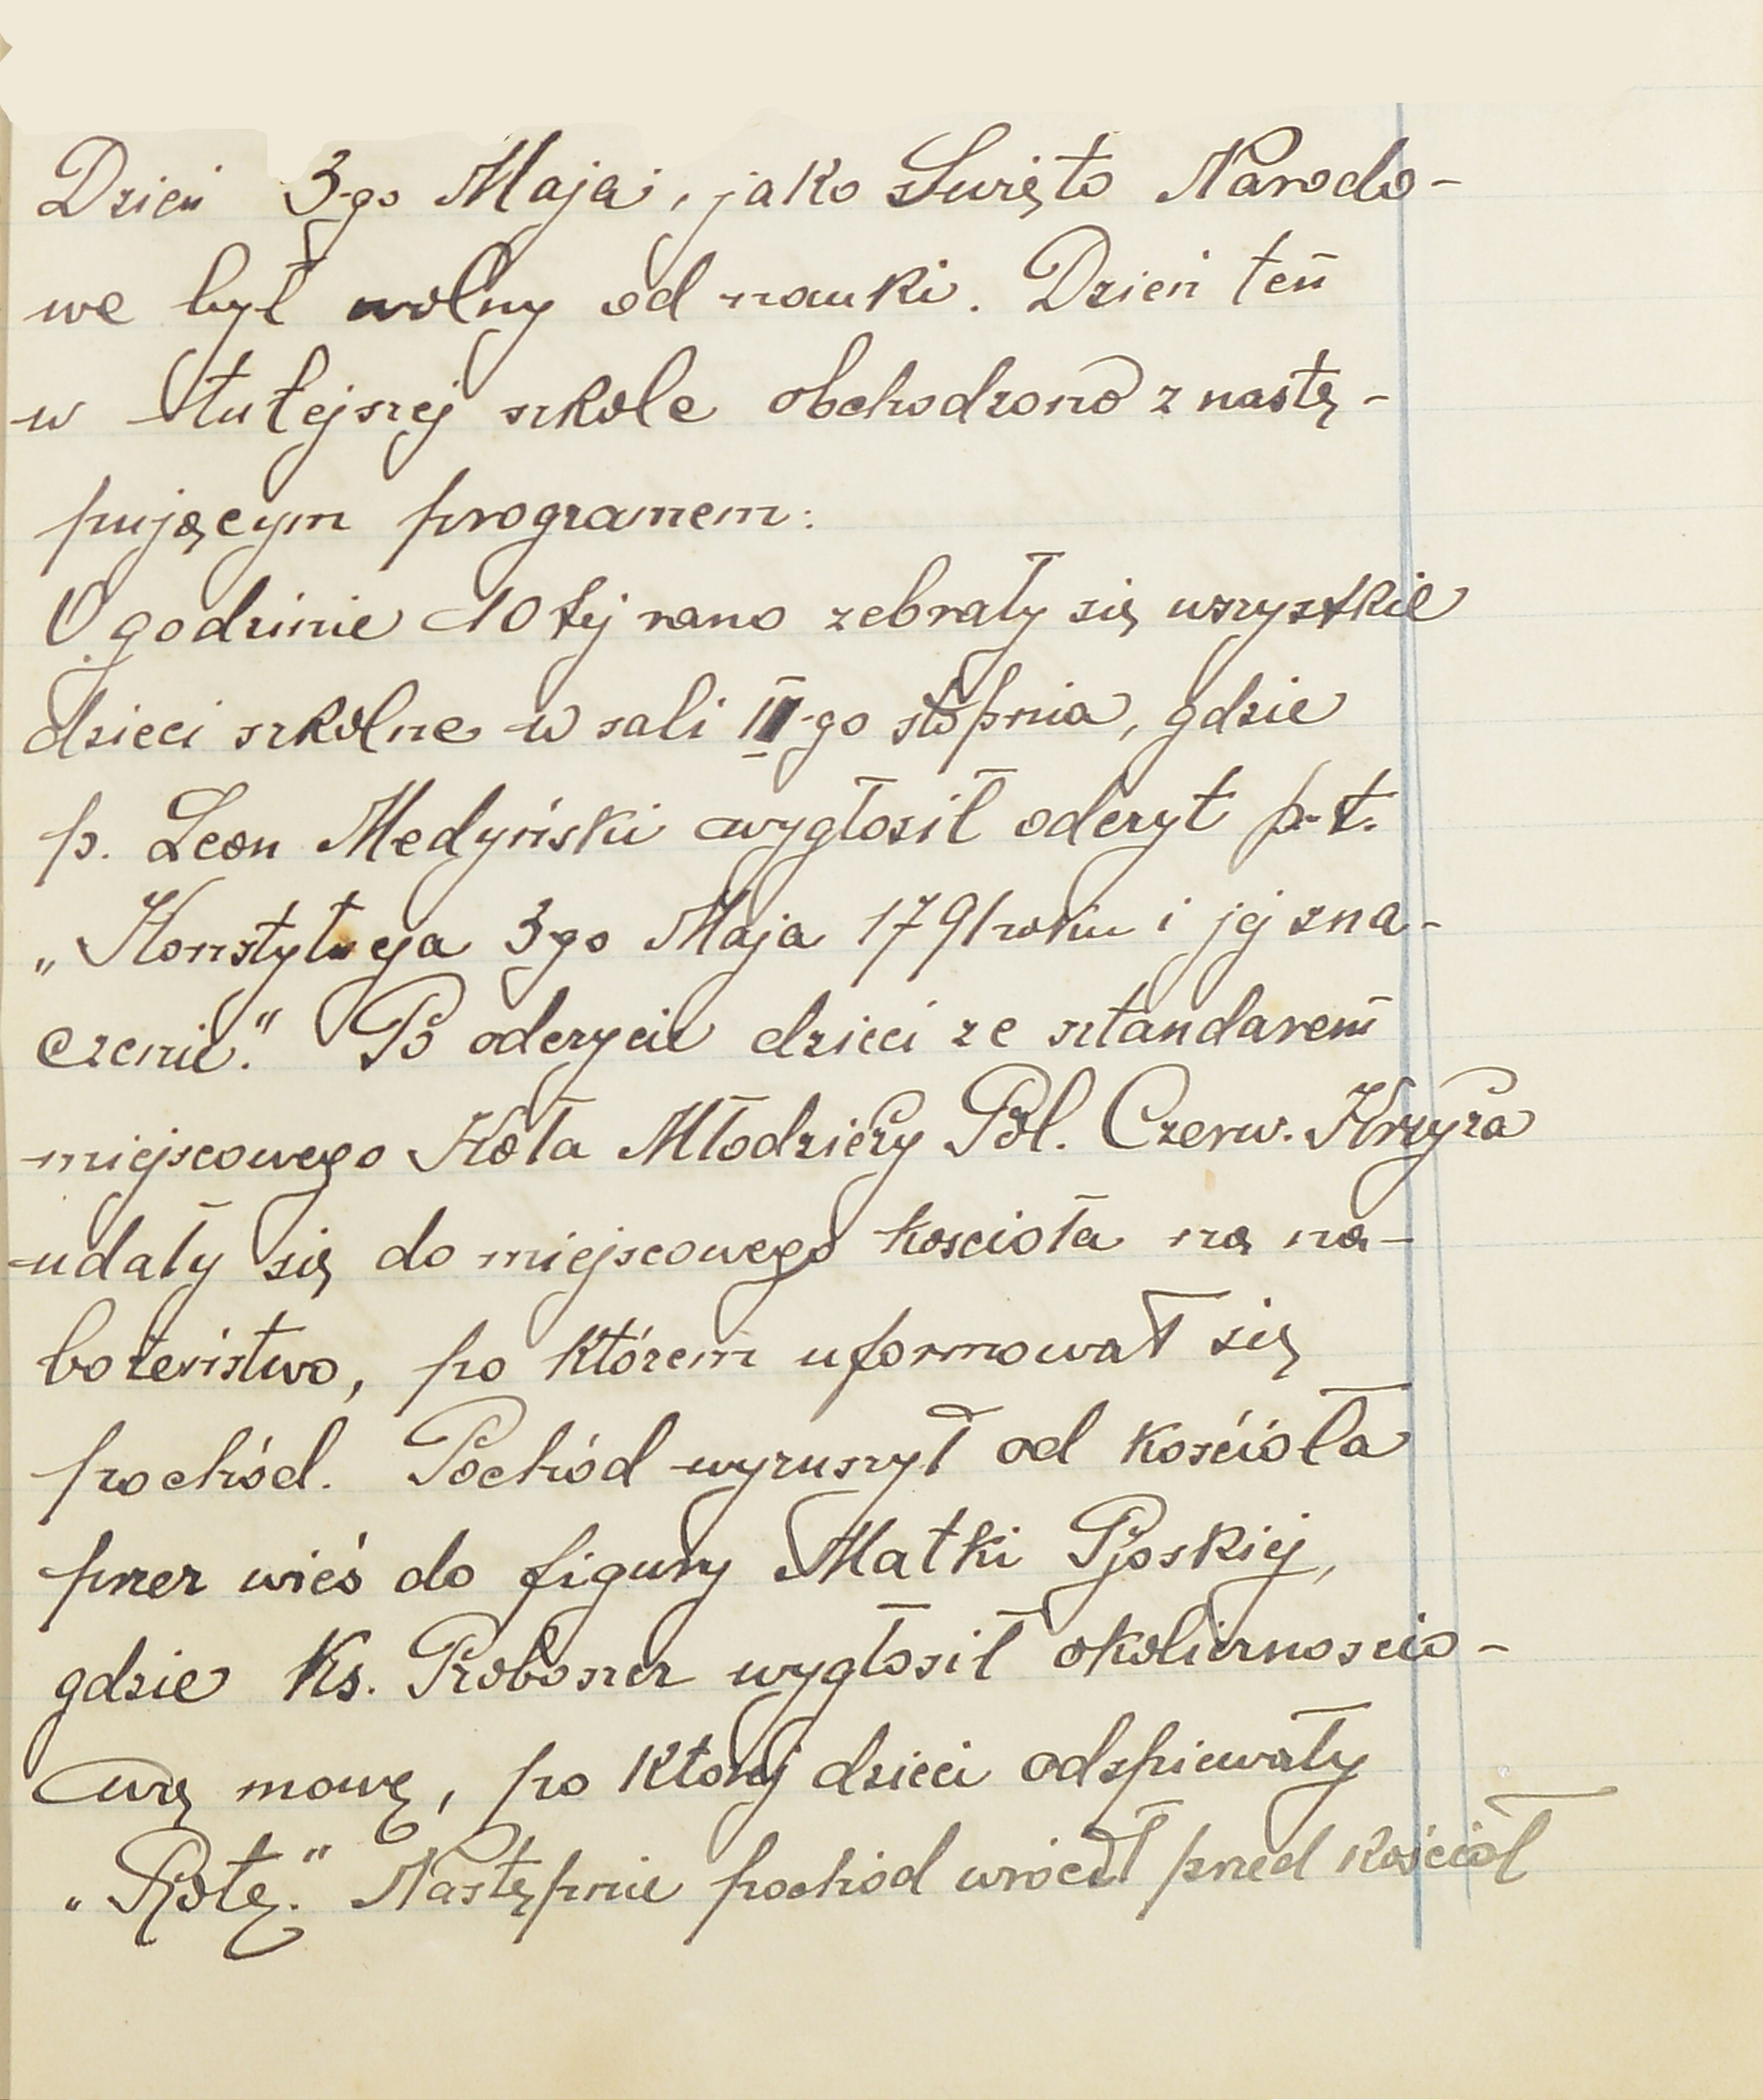 Dzień 3-go Maja, jako Święto Narodo-
we był wolny od nauki. Dzień ten
w tutejszej szkole obchodzono z nastę-
pującym programem:
O godzinie 10 tej rano zebrały się wszystkie
dzieci szkolne w sali II-go stopnia, gdzie
p. Leon Medyński wygłosił odczyt p.t.
„Konstytucja 3go Maja 1791 roku i jej zna-
czenie." Po odczycie dzieci ze sztandarem
miejscowego Koła Młodzieży Pol. Czerw. Krzyża
udały się do miejscowego kościoła na na-
bożeństwo, po którem uformował się
pochód. Pochód wyruszył od kościoła
przez wieś do figury Matki Boskiej,
gdzie Ks. Proboszcz wygłosił okolicznościo-
wą mowę, po której dzieci odśpiewały
„Rotę." Następnie pochód wrócił przed kościół